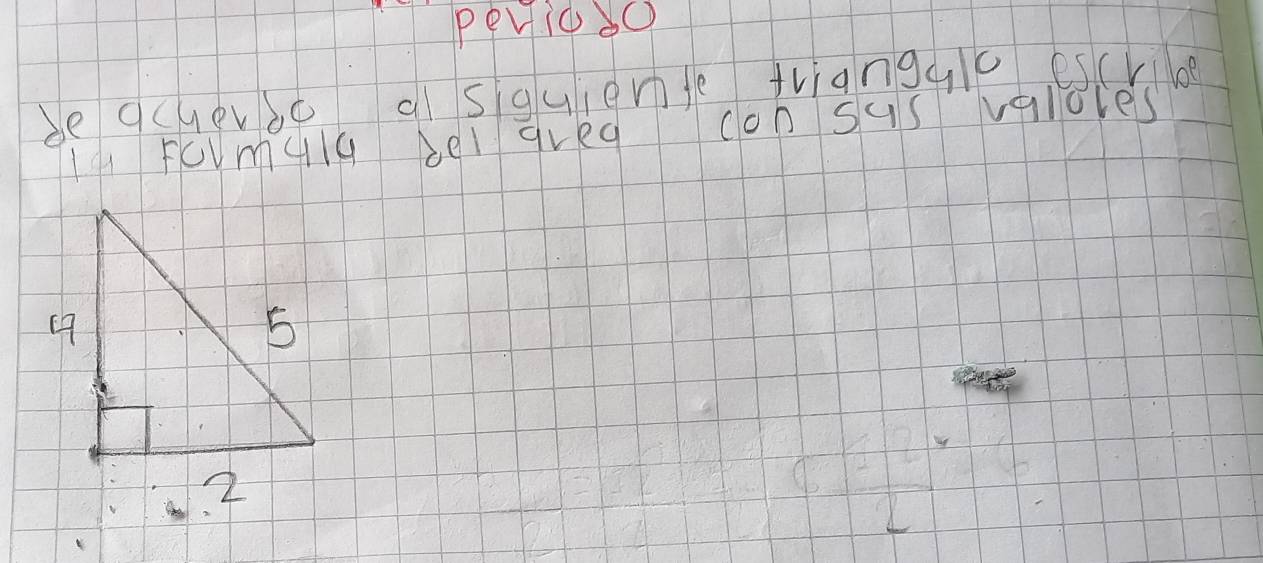 periodo
De acuerdo al siguiente triangulo escribe
la formula del area con sus valores
4
5
2